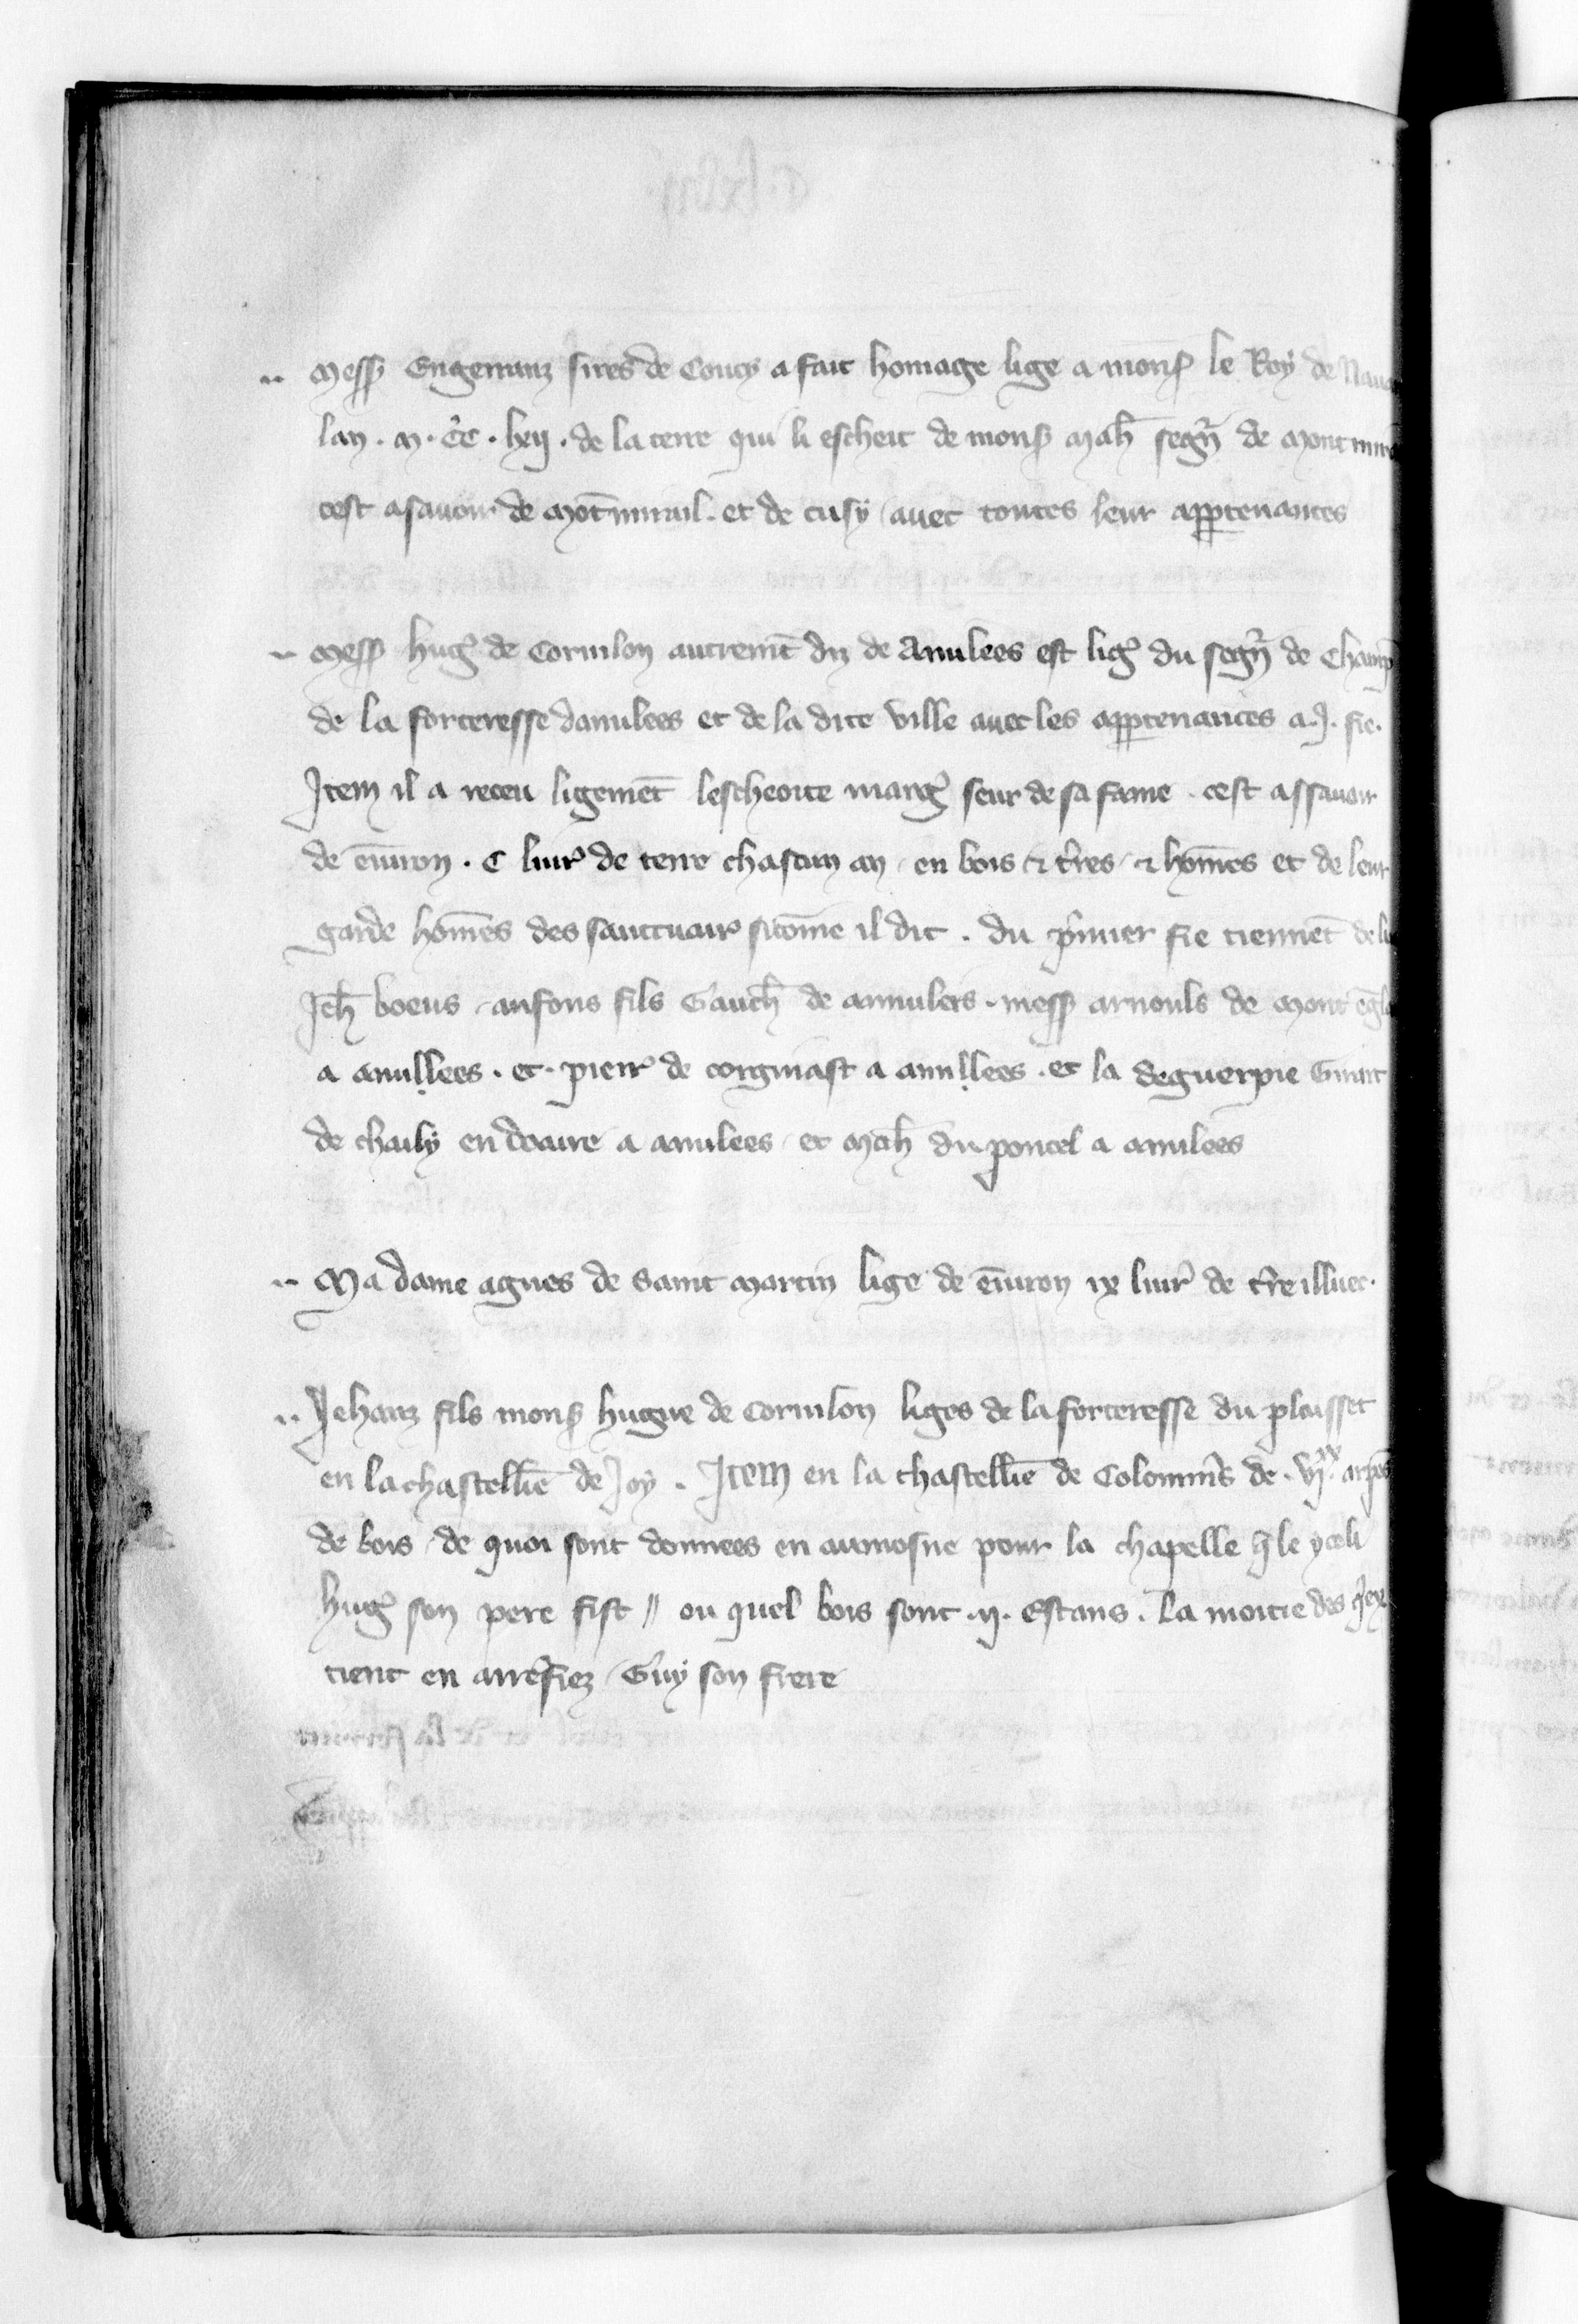 Mess Engerranz sires de Coucy a fait homage lige a mons le Roy de
lan . M . CC . lxij . de la terre qui li escheit de mons Mah segn̄ de
cest asavoir de Mōtmirail . et de cusy / avec toutes leur appartenances
Mess hug de Cornilon autremēt dit de Amilees est lige du segn̄ de
de la forteresse damilees et de la dite ville avec les appartenances a .j. fie .
Item il a receu ligemēt lescheoite marg seur de sa fame . cest assavoir
de ēviron . C livr de terre chascun an / en bois & t̄res / & hōmes et de leur
garde hōmes des sainctuair sicōme il dit . du p̄mier fie tiennēt de
Jeh boeus / anfons fils Gauch de amilees . mess arnouls de Mont
a amillees . et . pierr de corgmast a amillees . et la deguerpie Girart
de chaily en doaire a amilees / et Mah du poncel a amilees
Ma dame agnes de Saint Martin lige de ēviron ix livr de t̄re illuec .
Jehanz fils mons hugue de Cornilon liges de la forteresse du plaisset
en la chastelliē de Joy . Item en la chastelliē de Colommis de . vjxx . arpēs
de bois / de quoi sont donnees en aumosne pour la chapelle q̄ le yceli
hug son pere fist // ou quel bois sont .ij. Estans . la moitie des
tient en arrefiez / Guy son frere